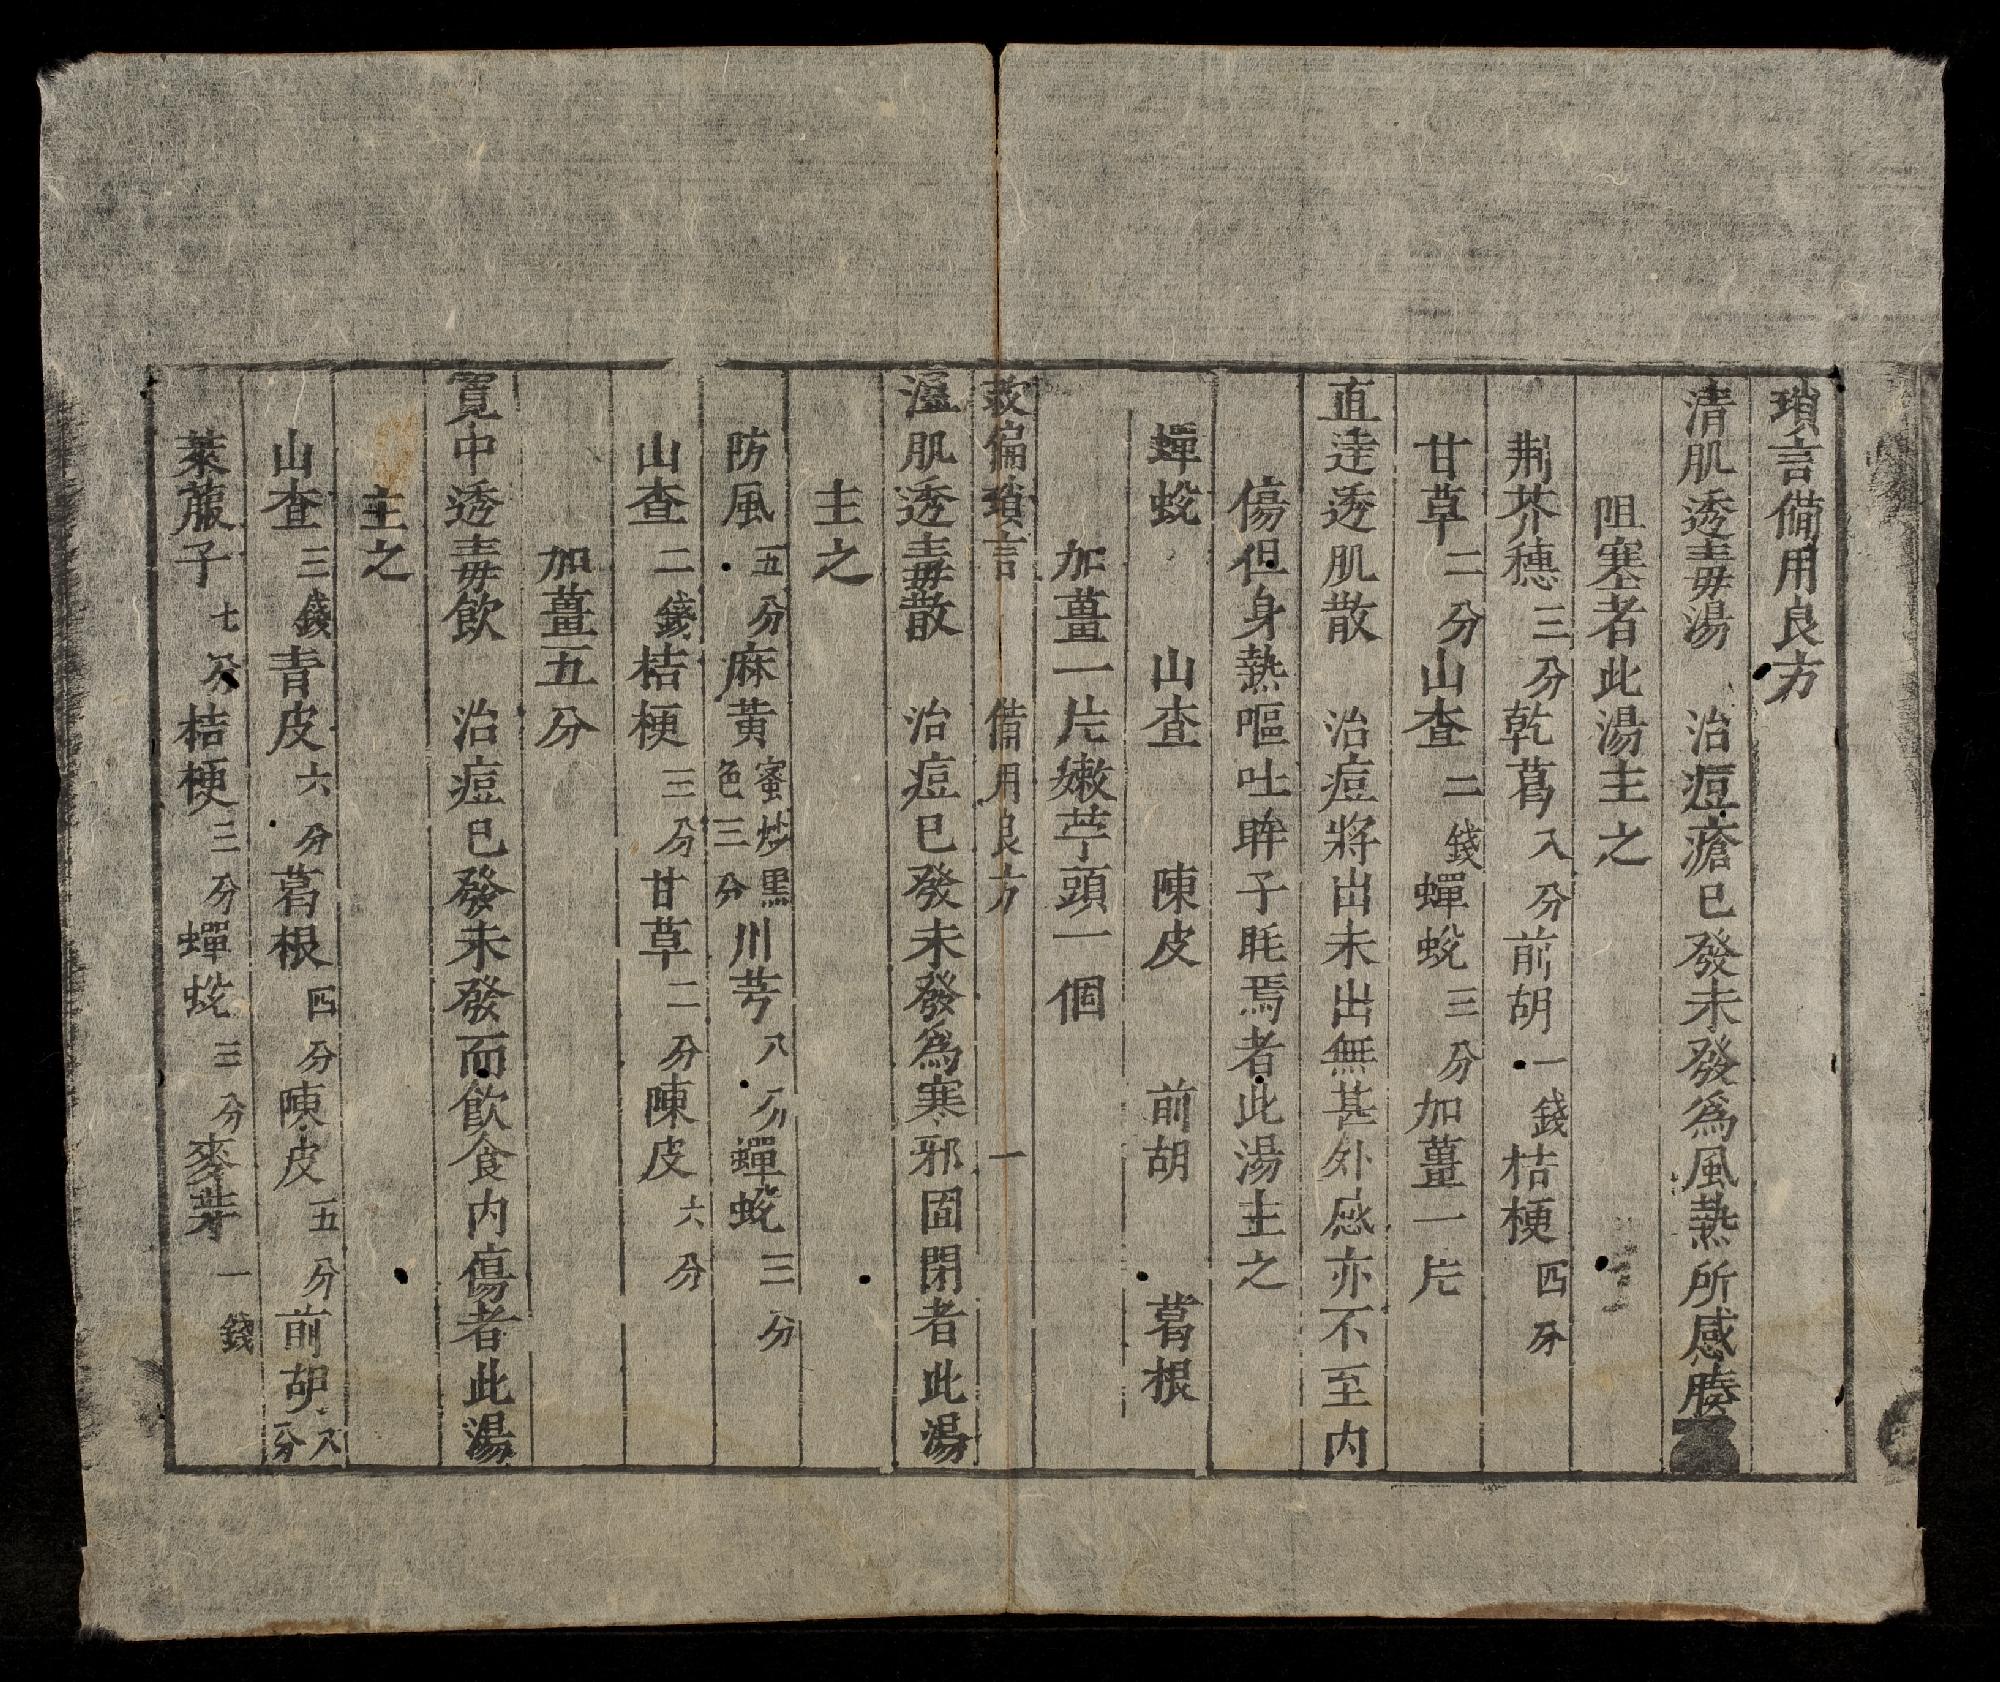 瑣言備用良方
清肌透毒湯　治痘瘡已發未發爲風熱所感腠
阻塞者此湯主之
荆芥穗三分乾葛八分前胡一錢桔梗四分
甘草二分山查二錢蟬蛻三分加薑一片
直達透肌散　治痘將出未出無甚外感亦不至內
傷但身熱嘔吐眸子眊焉者此湯主之
蟬蛻　山查　陳皮　前胡　葛根
加薑一片嫩苧頭一個
救偏瑣言　備用良方　一
溫肌透毒散　治痘已發未發爲寒邪固閉者此湯
主之
防風五分麻黃蜜炒黑色三分川芎八分蟬蛻三分
山查二錢桔梗三分甘草二分陳皮六分
加薑五分
寬中透毒飲　治痘已發未發而飲食內傷者此湯
主之
山查三錢青皮六分葛根四分陳皮五分前胡八分
萊菔子七分桔梗三分蟬蛻三分麥芽一錢